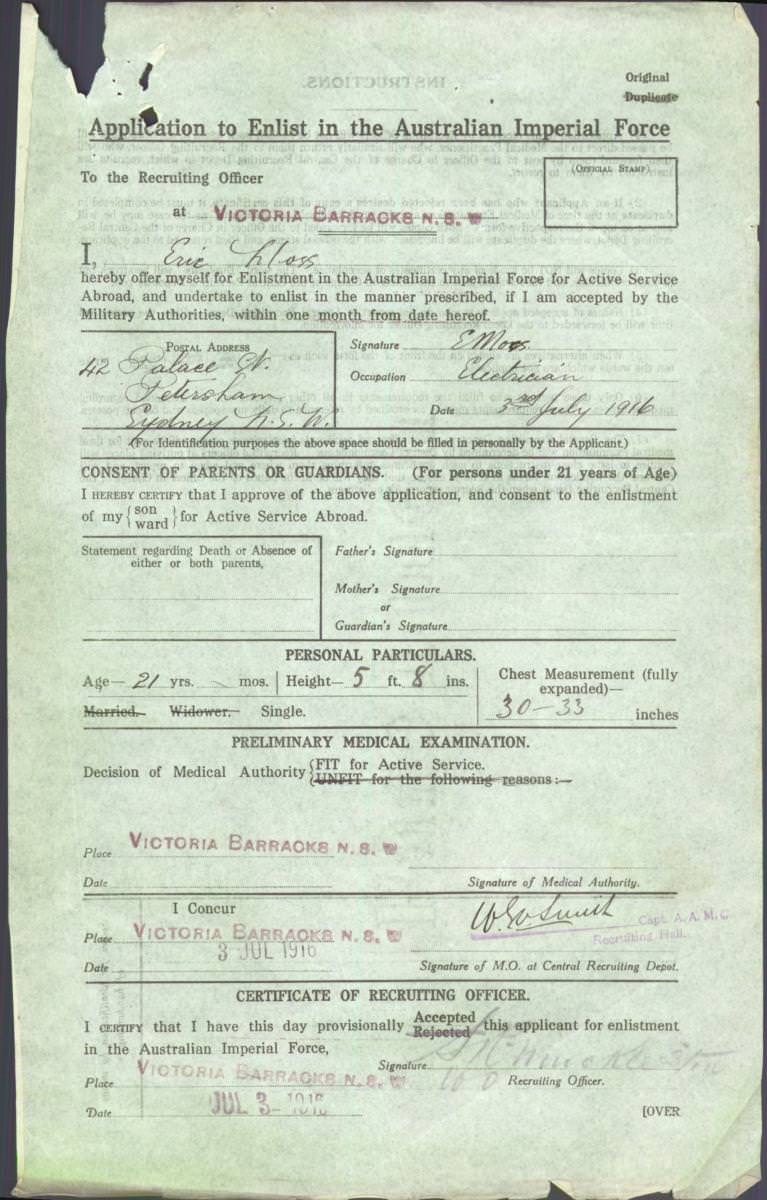 Original
Duplicate
Application to Enlist in the Australian Imperial Force
(OFFICIAL STAMP)
To the Recruiting Officer
at VICTORIA BARRACKS N. S. W
I, Eric Moss
hereby offer myself for Enlistment in the Australian Imperial Force for Active Service
Abroad, and undertake to enlist in the manner prescribed, if I am accepted by the
Military Authorities, within one month from date hereof.
POSTAL ADDRESS
42 Palace St.
Petersham
Sydney N.S.W.
Signature E Moss
Occupation Electrician
Date 3rd July 1916
(For Identification purposes the above space should be filled in personally by the Applicant.)
CONSENT OF PARENTS OR GUARDIANS. (For persons under 21 years of Age)
I HEREBY CERTIFY that I approve of the above application, and consent to the enlistment
of my {son ward} for Active Service Abroad.
Statement regarding Death or Absence of
either or both parents,
Father's Signature
Mother's Signature
or
Guardian's Signature
PERSONAL PARTICULARS.
Age— 21 yrs. mos. Height— 5 ft. 8 ins.
Chest Measurement (fully
expanded)—
30-33 inches
Married. Widower. Single.
PRELIMINARY MEDICAL EXAMINATION.
Decision of Medical Authority {FIT for Active Service.
UNFIT for the following reasons:—
Place VICTORIA BARRACKS N. S. W
Date
Signature of Medical Authority.
I Concur
Place VICTORIA BARRACKS N. S. W
3 JUL 1916
Date
Capt. A.A.M.C
Recruiting Hall.
Signature of M.O. at Central Recruiting Depot.
CERTIFICATE OF RECRUITING OFFICER.
I CERTIFY that I have this day provisionally Accepted Rejected this applicant for enlistment
in the Australian Imperial Force,
Signature
Recruiting Officer.
Place VICTORIA BARRACKS N. S. W
Date JUL 3- 1916
[OVER